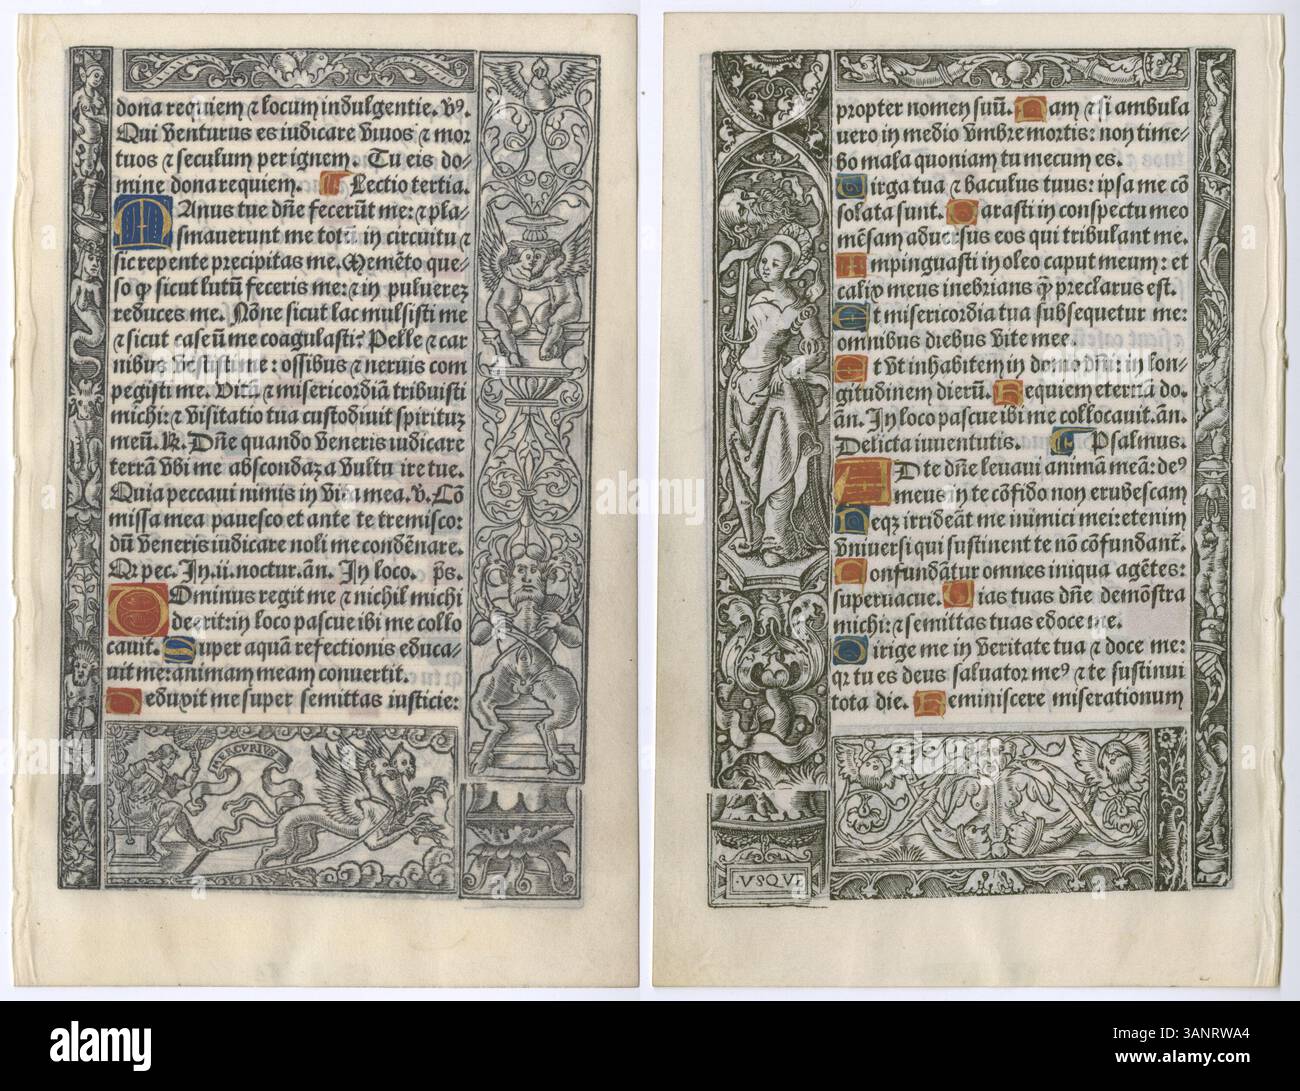 dona requiem ⁊ locum indulgentie. v̉.
Qui venturus es iudicare viuos ⁊ mor
tuos ⁊ seculum per ignem. Tu eis do-
mine dona requiem. Lectio tertia.
MAnus tue dn̄e fecerūt me: ⁊ pla-
smauerunt me totū in circuitu ⁊
sic repente precipitas me. Memēto que-
so ꝙ sicut lutū feceris me: ⁊ in puluereꝫ
reduces me. Nōne sicut lac mulsisti me
⁊ sicut caseū me coagulasti: Pelle ⁊ car
nibus vestisti me: ossibus ⁊ neruis com
pegisti me. Vitā ⁊ misericordiā tribuisti
michi: ⁊ visitatio tua custodiuit spirituꝫ
meū. ℟. Dn̄e quando veneris iudicare
terrā vbi me abscondaꝫ a vultu ire tue.
Quia peccaui nimis in vita mea. v. Cō
missa mea pauesco et ante te tremisco:
dū veneris iudicare noli me condēnare.
In.ii. noctur. an. In loco. p̄s.
DOminus regit me ⁊ nichil michi
deerit: in loco pascue ibi me collo
cauit. Super aquā refectionis educa-
uit me: animam meam conuertit.
Deduxit me super semittas iusticie:
MERCURIVS
propter nomen suū. Nam ⁊ si ambula
uero in medio vmbre mortis: non time-
bo mala quoniam tu mecum es.
Virga tua ⁊ baculus tuus: ipsa me cō
solata sunt. Parasti in conspectu meo
mēsam aduersus eos qui tribulant me.
Impinguasti in oleo caput meum: et
calix meus inebrians ꝙ̄ preclarus est.
Et misericordia tua subsequetur me:
omnibus diebus vite mee.
Et vt inhabitem in domo dn̄i: in lon-
gitudinem dierū. Requiem eternā do.
an. In loco pascue ibi me collocauit. an.
Delicta iuuentutis. Psalmus.
AD te dn̄e leuaui animā meā: deꝰ
meus in te cōfido non erubescam
Neqꝫ irrideāt me inimici mei: etenim
vniuersi qui sustinent te nō cōfundāt.
Confundātur omnes iniqua agētes:
superuacue. Vias tuas dn̄e demōstra
michi: ⁊ semittas tuas edoce me.
Dirige me in veritate tua ⁊ doce me:
qꝛ tu es deus saluator meꝰ ⁊ te sustinui
tota die. Reminiscere miserationum
·VSQVE
a
alamy
Image ID: 3ANRWA4
www.alamy.com